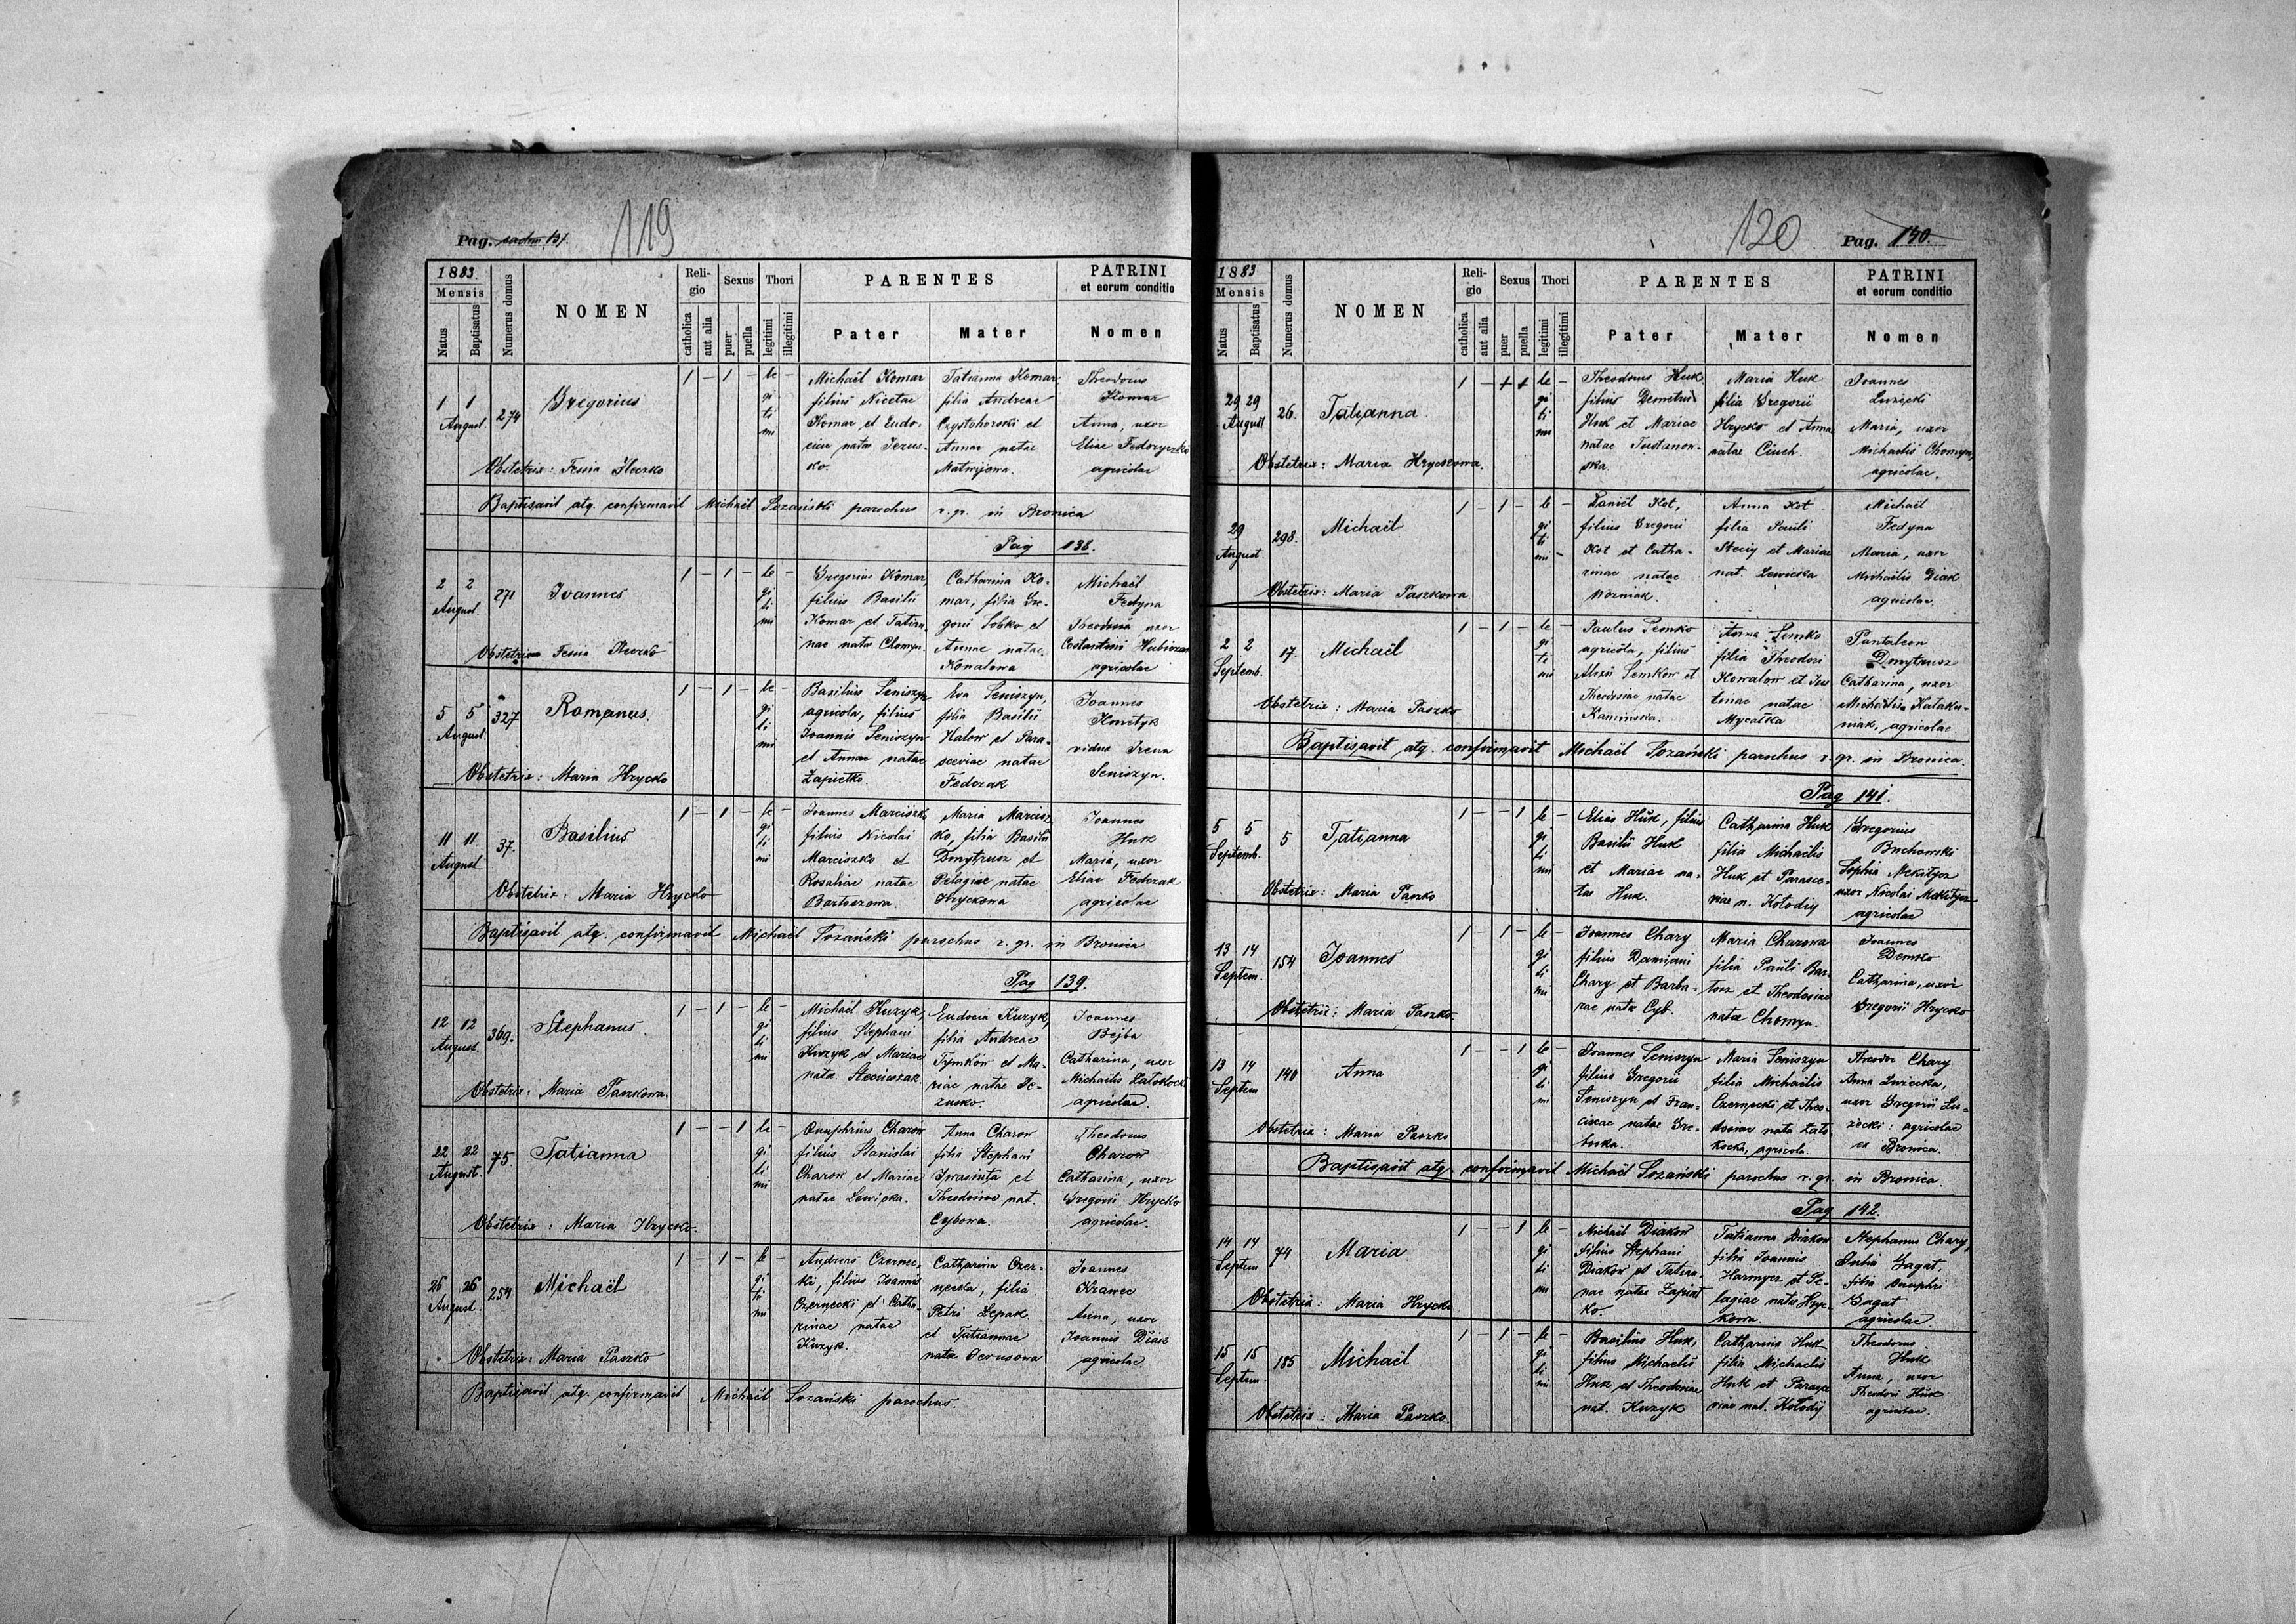 119
Pag. 137.
1883.
Mensis
Natus
Baptisatus
Numerus domus
NOMEN
Reli-
gio
catholica
aut alia
Sexus
puer
puella
Thori
legitimi
illegitimi
PARENTES
Pater
Mater
PATRINI
et eorum conditio
Nomen
1 1
August.
274
Gregorius
1 – 1 – le –
gi
ti
mi
Michaël Komar
filius Nicetae
Komar et Eudo-
ciae natae Jezus-
ko.
Tatianna Komar,
filia Andreae
Czystohorski et
Annae natae
Matwijowa.
Theodorus
Komar
Anna, uxor
Eliae Fedoryczki
agricolae
Obstetrix: Fesia Fleczko
Baptisavit atq. confirmavit Michaël Sozański parochus r. gr. in Bronica
Pag 138.
2 2
August.
271
Joannes
1 – 1 – le –
gi
ti
mi
Gregorius Komar,
filius Basilii
Komar et Tatian-
nae natae Chomyn.
Catharina Ko-
mar, filia Gre-
gorii Sobko et
Annae natae
Konalowa
Michaël
Fedyna
Theodosia uxor
Costantini Hubiczan
agricolae
Obstetrix Fesia Fleczko
5 5
August.
327
Romanus.
1 – 1 – le –
gi
ti
mi
Basilius Seniszyn
agricola, filius
Joannis Seniszyn
et Annae natae
Zapietko.
Eva Seniszyn,
filia Basilii
Halow et Para-
sceviae natae
Fedczak
Joannes
Kowtyk
vidua Irena
Seniszyn.
Obstetrix: Maria Hrycko
11 11
August
37.
Basilius
1 – 1 – le –
gi
ti
mi
Joannes Marciszko
filius Nicolai
Marciszko et
Rosaliae natae
Bartoszowa.
Maria Marcisz
ko, filia Basilii
Dmytrusz et
Pelagiae natae
Hryckowa
Joannes
Huk
Maria, uxor
Eliae Fedczak
agricolae
Obstetrix: Maria Hrycko
Baptisavit atq. confirmavit Michaël Sozański parochus r. gr. in Bronica
Pag 139.
12 12
August.
369.
Stephanus.
1 – 1 – le –
gi
ti
mi
Michaël Kuzyk,
filius Stephani
Kuzyk et Mariae
natae Steciuszak.
Eudocia Kuzyk,
filia Andreae
Tymków et Ma-
riae natae Je-
zusko.
Joannes
Bojba
Catharina, uxor
Michaëlis Zatolocki
agricolae.
Obstetrix: Maria Paszkowa.
22 22
August.
75.
Tatianna
1 – – 1 le –
gi
ti
mi
Onuphrius Charow
filius Stanislai
Charow et Mariae
natae Lewicka.
Anna Charow
filia Stephani
Iwasiuta et
Theodosiae nat.
Cybowa.
Theodorus
Charow
Catharina, uxor
Gregorii Hrycko
agricolae.
Obstetrix: Maria Hrycko.
26 26
August.
254
Michaël
1 – 1 – le –
gi
ti
mi
Andreas Czernec-
ki, filius Joannis
Czernecki et Catha
rinae natae
Kuzyk.
Catharina Czer-
necka, filia
Petri Lepak
et Tatiannae
natae Jerusowa
Joannes
Krawec
Anna, uxor
Joannis Diak
agricolae
Obstetrix: Maria Paszko
Baptisavit atq. confirmavit Michaël Sozański parochus.
120
Pag. 140.
1883
Mensis
Natus
Baptisatus
Numerus domus
NOMEN
Reli-
gio
catholica
aut alia
Sexus
puer
puella
Thori
legitimi
illegitimi
PARENTES
Pater
Mater
PATRINI
et eorum conditio
Nomen
29 29
August
26.
Tatianna
1 – + + le –
gi
ti
mi
Theodorus Huk
filius Demetrii
Huk et Mariae
natae Tustanow-
ska.
Maria Huk
filia Gregorii
Hrycko et Annae
natae Ciuch.
Joannes
Luzecki
Maria, uxor
Michaelis Chomyn,
agricolae.
Obstetrix: Maria Hryckowa.
29
August.
298.
Michaël
1 – 1 – le –
gi
ti
mi –
Daniël Kot,
filius Gregorii
Kot et Catha-
rinae natae
Wozniak.
Anna Kot
filia Pauli
Steciy et Mariae
nat. Lewicka
Michaël
Fedyna
Maria, uxor
Michaëlis Diak
agricolae
Obstetrix: Maria Paszkowa
2 2
Septemb.
17.
Michaël
1 – 1 – le
gi
ti
mi
Paulus Semko
agricola, filius
Alexii Semkow et
Theodosiae natae
Kamińska.
Anna Semko
filia Theodori
Kowalow et Jus
tinae natae
Mycałka
Pantaleon
Dmytrusz
Catharina, uxor
Michaëlis Kołakow-
niak, agricolae
Obstetrix: Maria Paszko
Baptisavit atq. confirmavit Michaël Sozański parochus r. gr. in Bronica.
Pag 141.
5 5
Septemb.
5
Tatianna
1 – – 1 le –
gi
ti
mi
Elias Huk, filius
Basilii Huk
et Mariae na-
tae Huk.
Catharina Huk
filia Michaëlis
Huk et Parasce-
viae n. Kołodiy
Gregorius
Buchowski
Sophia Mekitycz
uxor Nicolai Mekitycz
agricolae
Obstetrix: Maria Paszko
13 14
Septem.
154
Joannes
1 – 1 – le –
gi
ti
mi
Joannes Chary
filius Damiani
Chary et Barba-
rae natae Cyb.
Maria Charowa
filia Pauli Bar-
tosz et Theodosiae
natae Chomyn.
Joannes
Demko
Catharina, uxor
Gregorii Hrycko
Obstetrix: Maria Paszko.
13 14
Septem
140
Anna
1 – – 1 le –
gi
ti
mi
Joannes Seniszyn
filius Gregorii
Seniszyn et Fran-
ciscae natae Gre-
boska.
Maria Seniszyn
filia Michaëlis
Czernecki et Theo-
dosiae natae Zato
kocka, agricolae.
Theodor Chary
Anna Luzecka,
uxor Gregorii Lu-
zecki: agricolae
ex Bronica.
Obstetrix: Maria Paszko
Baptisavit atq. confirmavit Michaël Sozański parochus r. gr. in Bronica.
Pag 142.
14 14
Septem
74
Maria
1 – – 1 le –
gi
ti
mi
Michaël Diakow
filius Stephani
Diakow et Tatian-
nae natae Zapiat
ko.
Tatianna Diakow
filia Joannis
Harmycz et Pe-
lagiae natae Hryc-
kowa.
Stephanus Chary,
Julia Gagat,
filia Onuphri
Gagat
agricolae
Obstetrix: Maria Hrycko
15 15
Septem.
185
Michaël
1 – 1 – le –
gi
ti
mi
Basilius Huk,
filius Michaelis
Huk et Theodosiae
nat. Kuzyk
Catharina Huk
filia Michaelis
Huk et Parasce
viae nat. Kołodij
Theodorus
Huk
Anna, uxor
Theodori Huk
agricolae.
Obstetrix: Maria Paszko.